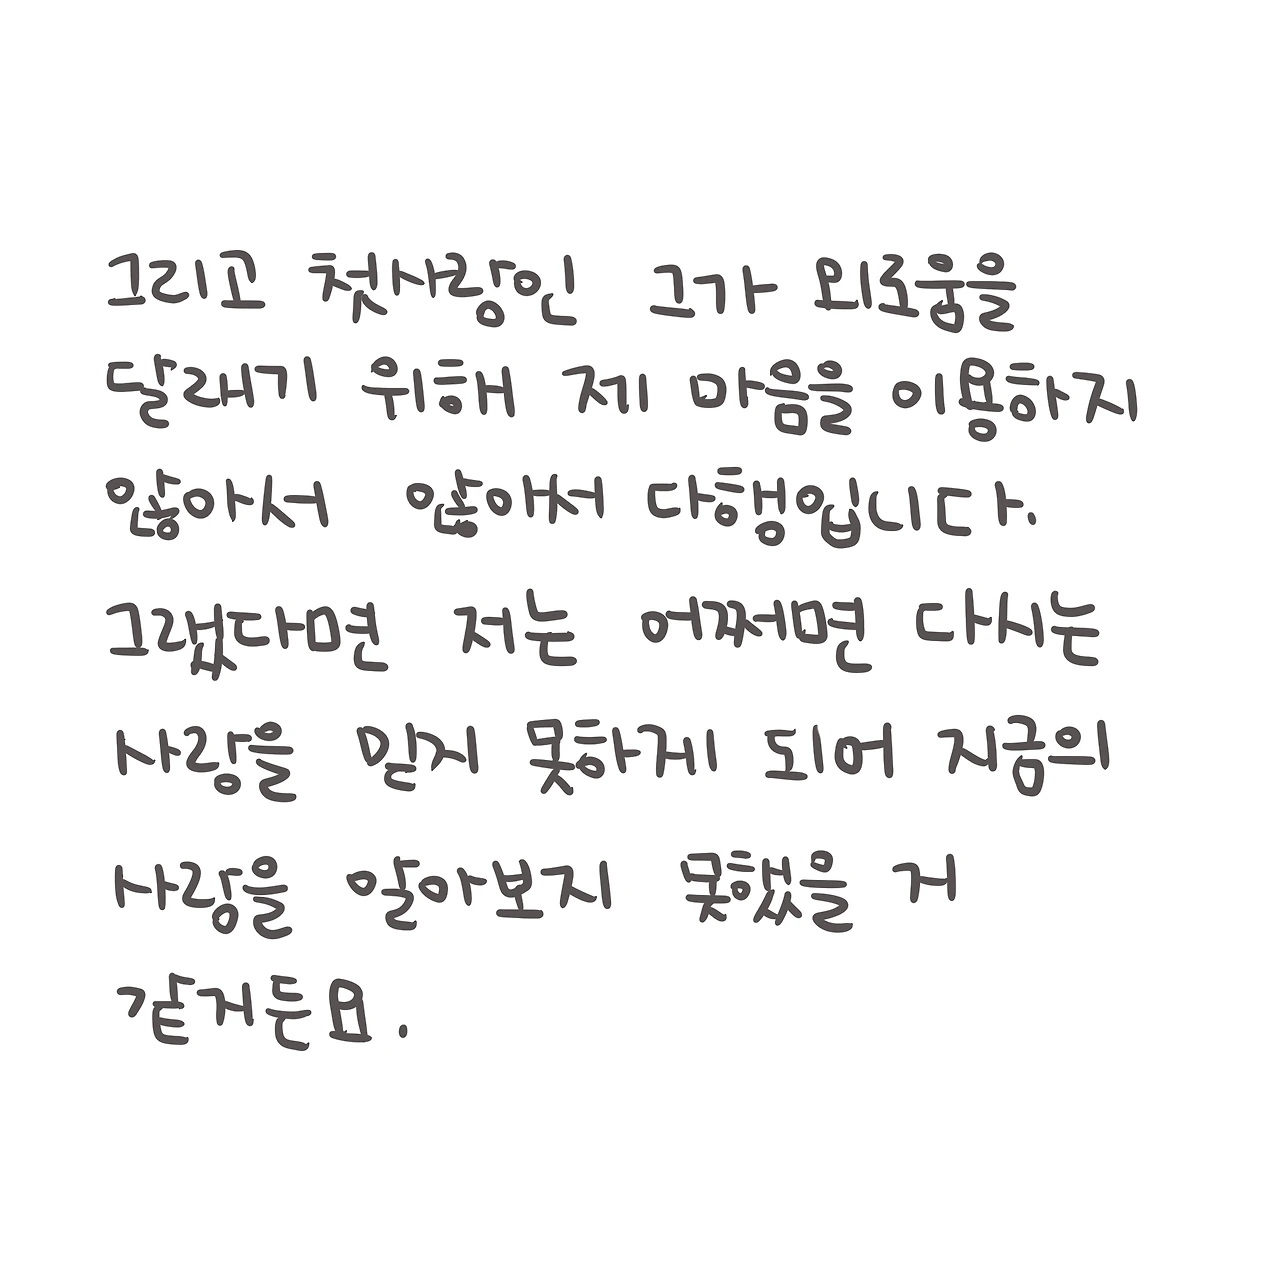 그리고 첫사랑인 그가 외로움을
달래기 위해 제 마음을 이용하지
않아서 않아서 다행입니다.
그랬다면 저는 어쩌면 다시는
사랑을 믿지 못하게 되어 지금의
사랑을 알아보지 못했을 거
같거든요.